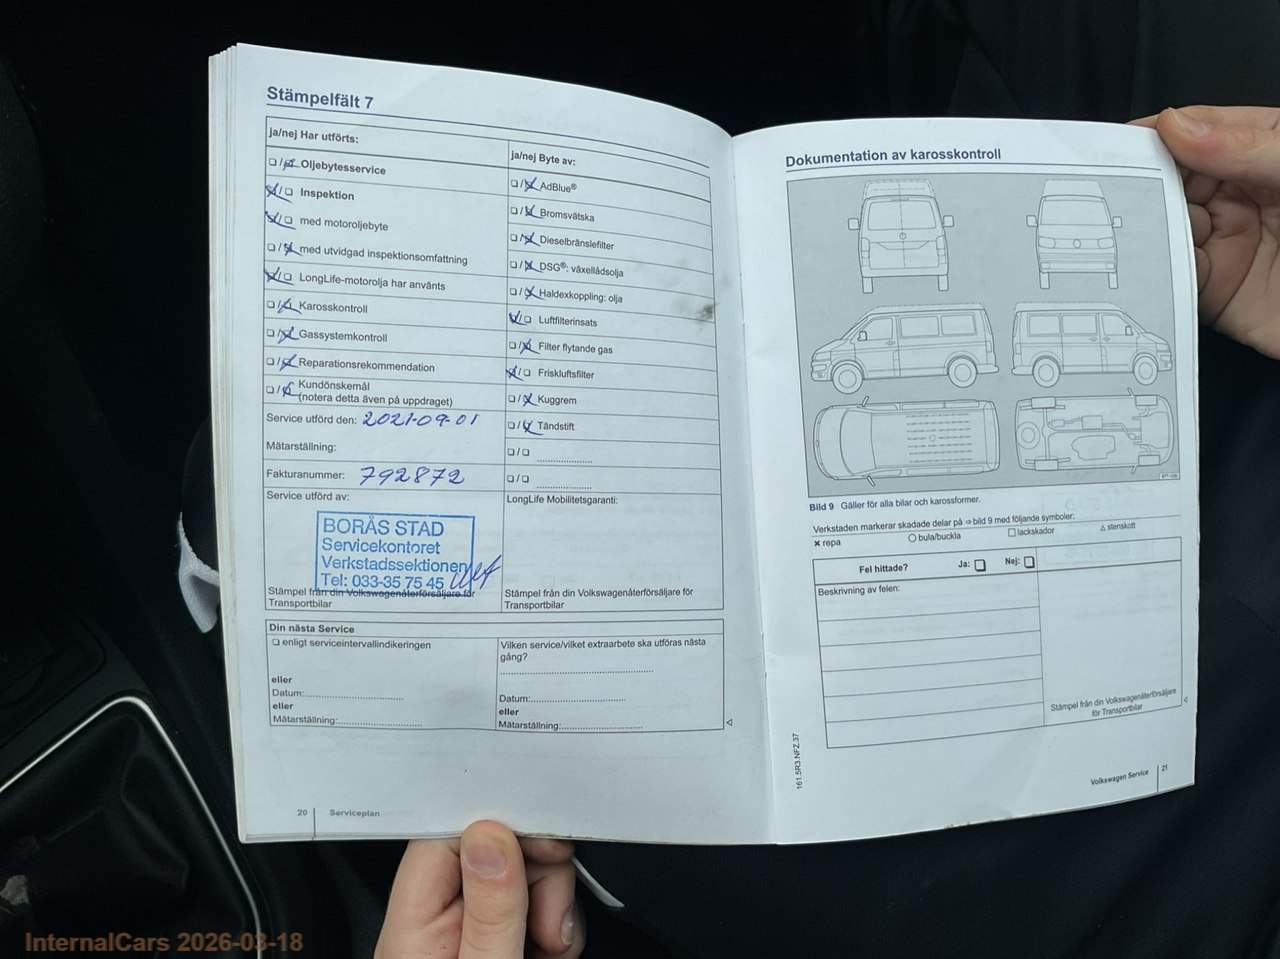 Stämpelfält 7
ja/nej Har utförts:
❏/❏ Oljebytesservice
❏/❏ Inspektion
❏/❏ med motoroljebyte
❏/❏ med utvidgad inspektionsomfattning
❏/❏ LongLife-motorolja har använts
❏/❏ Karosskontroll
❏/❏ Gassystemkontroll
❏/❏ Reparationsrekommendation
❏/❏ Kundönskemål
(notera detta även på uppdraget)
Service utförd den: 2021-09-01
Mätarställning:
Fakturanummer: 792872
Service utförd av:
BORÅS STAD
Servicekontoret
Verkstadssektionen
Tel: 033-35 75 45
Stämpel från din Volkswagenåterförsäljare för
Transportbilar
ja/nej Byte av:
❏/❏ AdBlue®
❏/❏ Bromsvätska
❏/❏ Dieselbränslefilter
❏/❏ DSG®: växellådsolja
❏/❏ Haldexkoppling: olja
❏/❏ Luftfilterinsats
❏/❏ Filter flytande gas
❏/❏ Friskluftsfilter
❏/❏ Kuggrem
❏/❏ Tändstift
❏/❏ ....................
❏/❏ ....................
LongLife Mobilitetsgaranti:
Stämpel från din Volkswagenåterförsäljare för
Transportbilar
Din nästa Service
❏ enligt serviceintervallindikeringen
eller
Datum:....................
eller
Mätarställning:....................
Vilken service/vilket extraarbete ska utföras nästa
gång?
....................
Datum:....................
eller
Mätarställning:....................
20 Serviceplan
Dokumentation av karosskontroll
Bild 9 Gäller för alla bilar och karossformer.
Verkstaden markerar skadade delar på ⇒ bild 9 med följande symboler:
× repa ○ bula/buckla □ lackskador △ stenskott
Fel hittade? Ja: ❏ Nej: ❏
Beskrivning av felen:
Stämpel från din Volkswagenåterförsäljare
för Transportbilar
161.5R3.NFZ.37
Volkswagen Service 21
InternalCars 2026-03-18